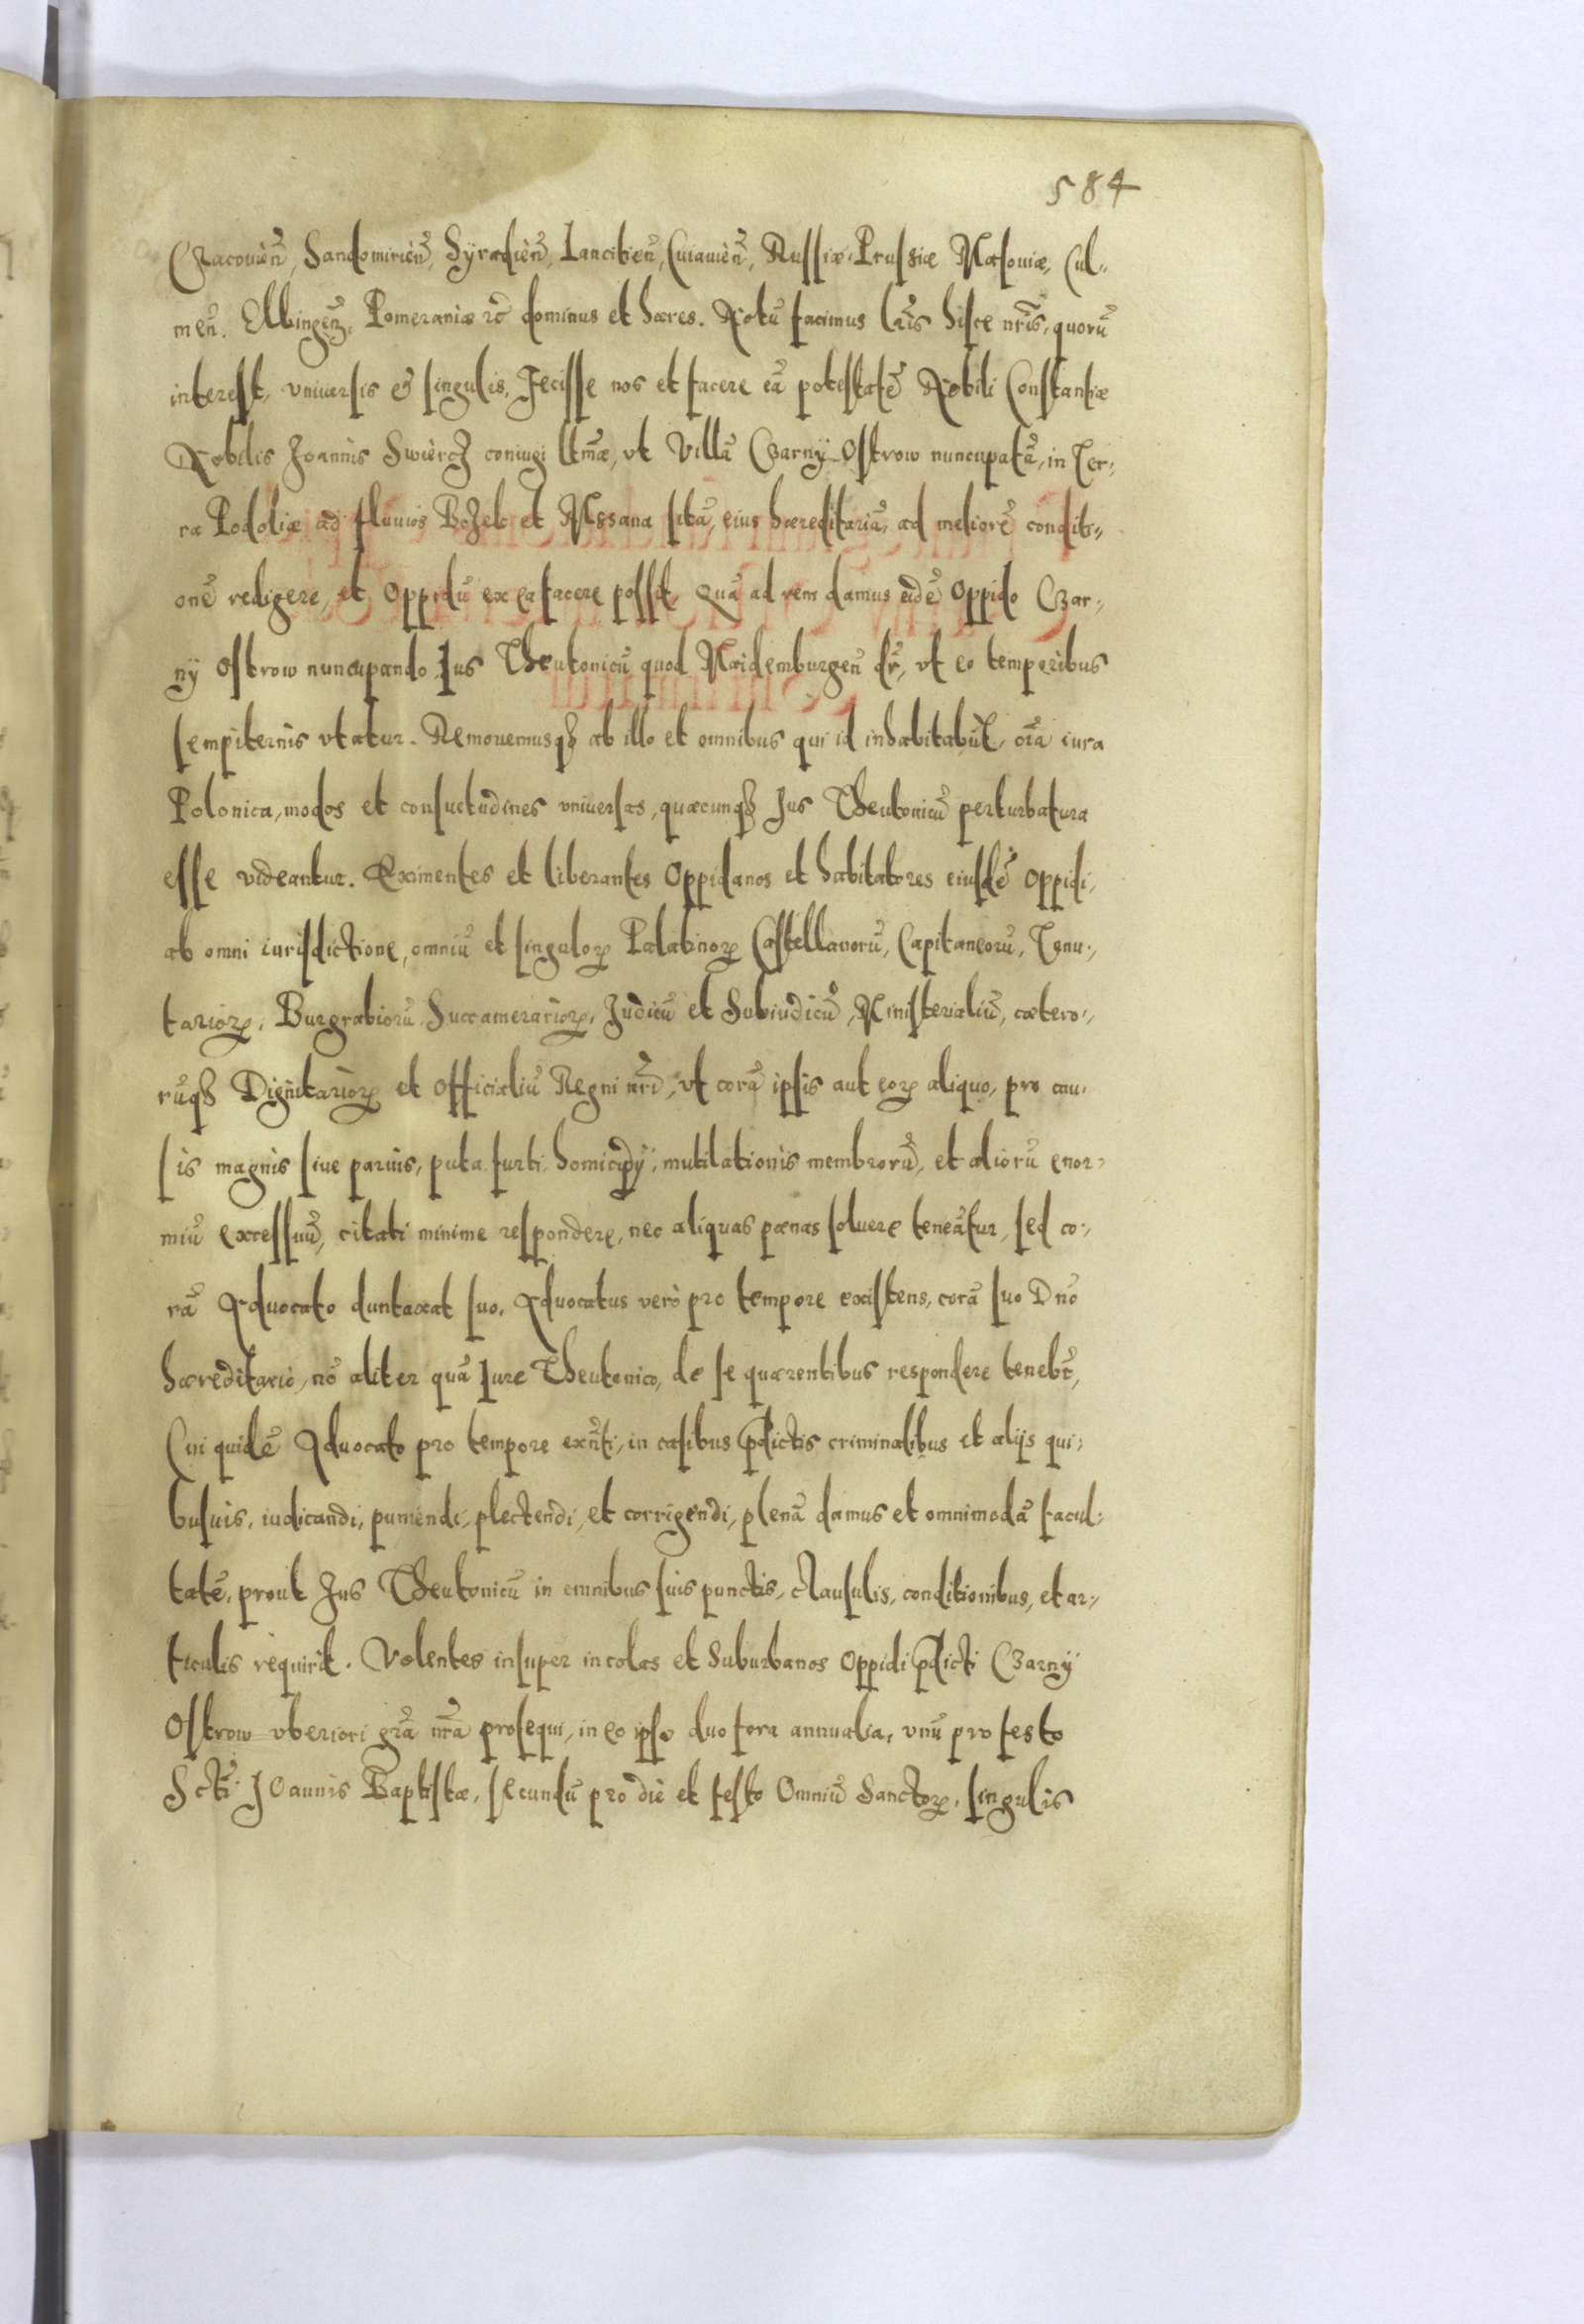 584
Cracovień, Sandomirień, Syradień, Lancitień, Cuiavień, Russiæ, Prussiæ Masoviæ, Cul„
meñ. Elbingeñ, Pomeraniæ ꝛc̃ dominus et hæres. Notũ facimus lr̃is hisce nr̃is, quorũ
interest, vniuersis et singulis, Fecisse nos et facere eã potestatẽ Nobili Constantiæ
Nobilis Joannis Swiercz coniugi ltmæ, vt Villã Czarny Ostrow nuncupatã, in Ter„
ra Podoliæ ad fluuios Bozek et Mssana sitã, eius hæreditariã, ad meliorẽ conditi„
onẽ redigere, et Oppidũ ex ea facere possit, Quã ad rem damus eidẽ Oppido Czar„
ny Ostrow nuncupando Jus Theutonicũ quod Maidemburgeñ dr̃, vt eo temporibus
sempiternis vtatur. Remouemusqȝ ab illo et omnibus qui id inhabitabũt, oĩa iura
Polonica, modos et consuetudines vniuersas, quæcunqȝ Jus Theutonicũ perturbatura
esse videantur. Eximentes et liberantes Oppidanos et habitatores eiusdẽ Oppidi,
ab omni iurisdictione, omniũ et singuloꝝ Palatinoꝝ Castellanorũ, Capitaneorũ, Tenu„
tarioꝝ, Burgrabiorũ Succamerarioꝝ, Judicũ et Subiudicũ, Ministerialiũ, cætero„
rũqȝ Dignitarioꝝ et Officialiũ Regni nr̃i, vt corã ipsis aut eoꝝ aliquo, pro cau„
sis magnis siue paruis, puta furti homicidÿ, mutilationis membrorũ, et aliorũ enor„
miũ excessuũ, citati minime respondere, nec aliquas pœnas soluere teneãtur, sed co„
rã Aduocato duntaxat suo, Aduocatus verò pro tempore existens, corã suo Dño
hæreditario, nõ aliter quã Jure Theutonico, de se quærentibus respondere tenebr̃,
Cui quidẽ Aduocato pro tempore exñti, in casibus p̃dictis criminalibus et alijs qui„
busuis, iudicandi, puniendi, plectendi, et corrigendi, plenã damus et omnimodã facul„
tatẽ, prout Jus Theutonicũ in omnibus suis punctis, clausulis, conditionibus, et ar„
ticulis requirit. Volentes insuper incolas et Suburbanos Oppidi p̃dicti Czarny
Ostrow vberiori gr̃a nr̃a prosequi, in eo ipso duo fora annualia, vnũ pro festo
Scti Joannis Baptistæ, secundũ pro die et festo Omniũ Sanctoꝝ, singulis